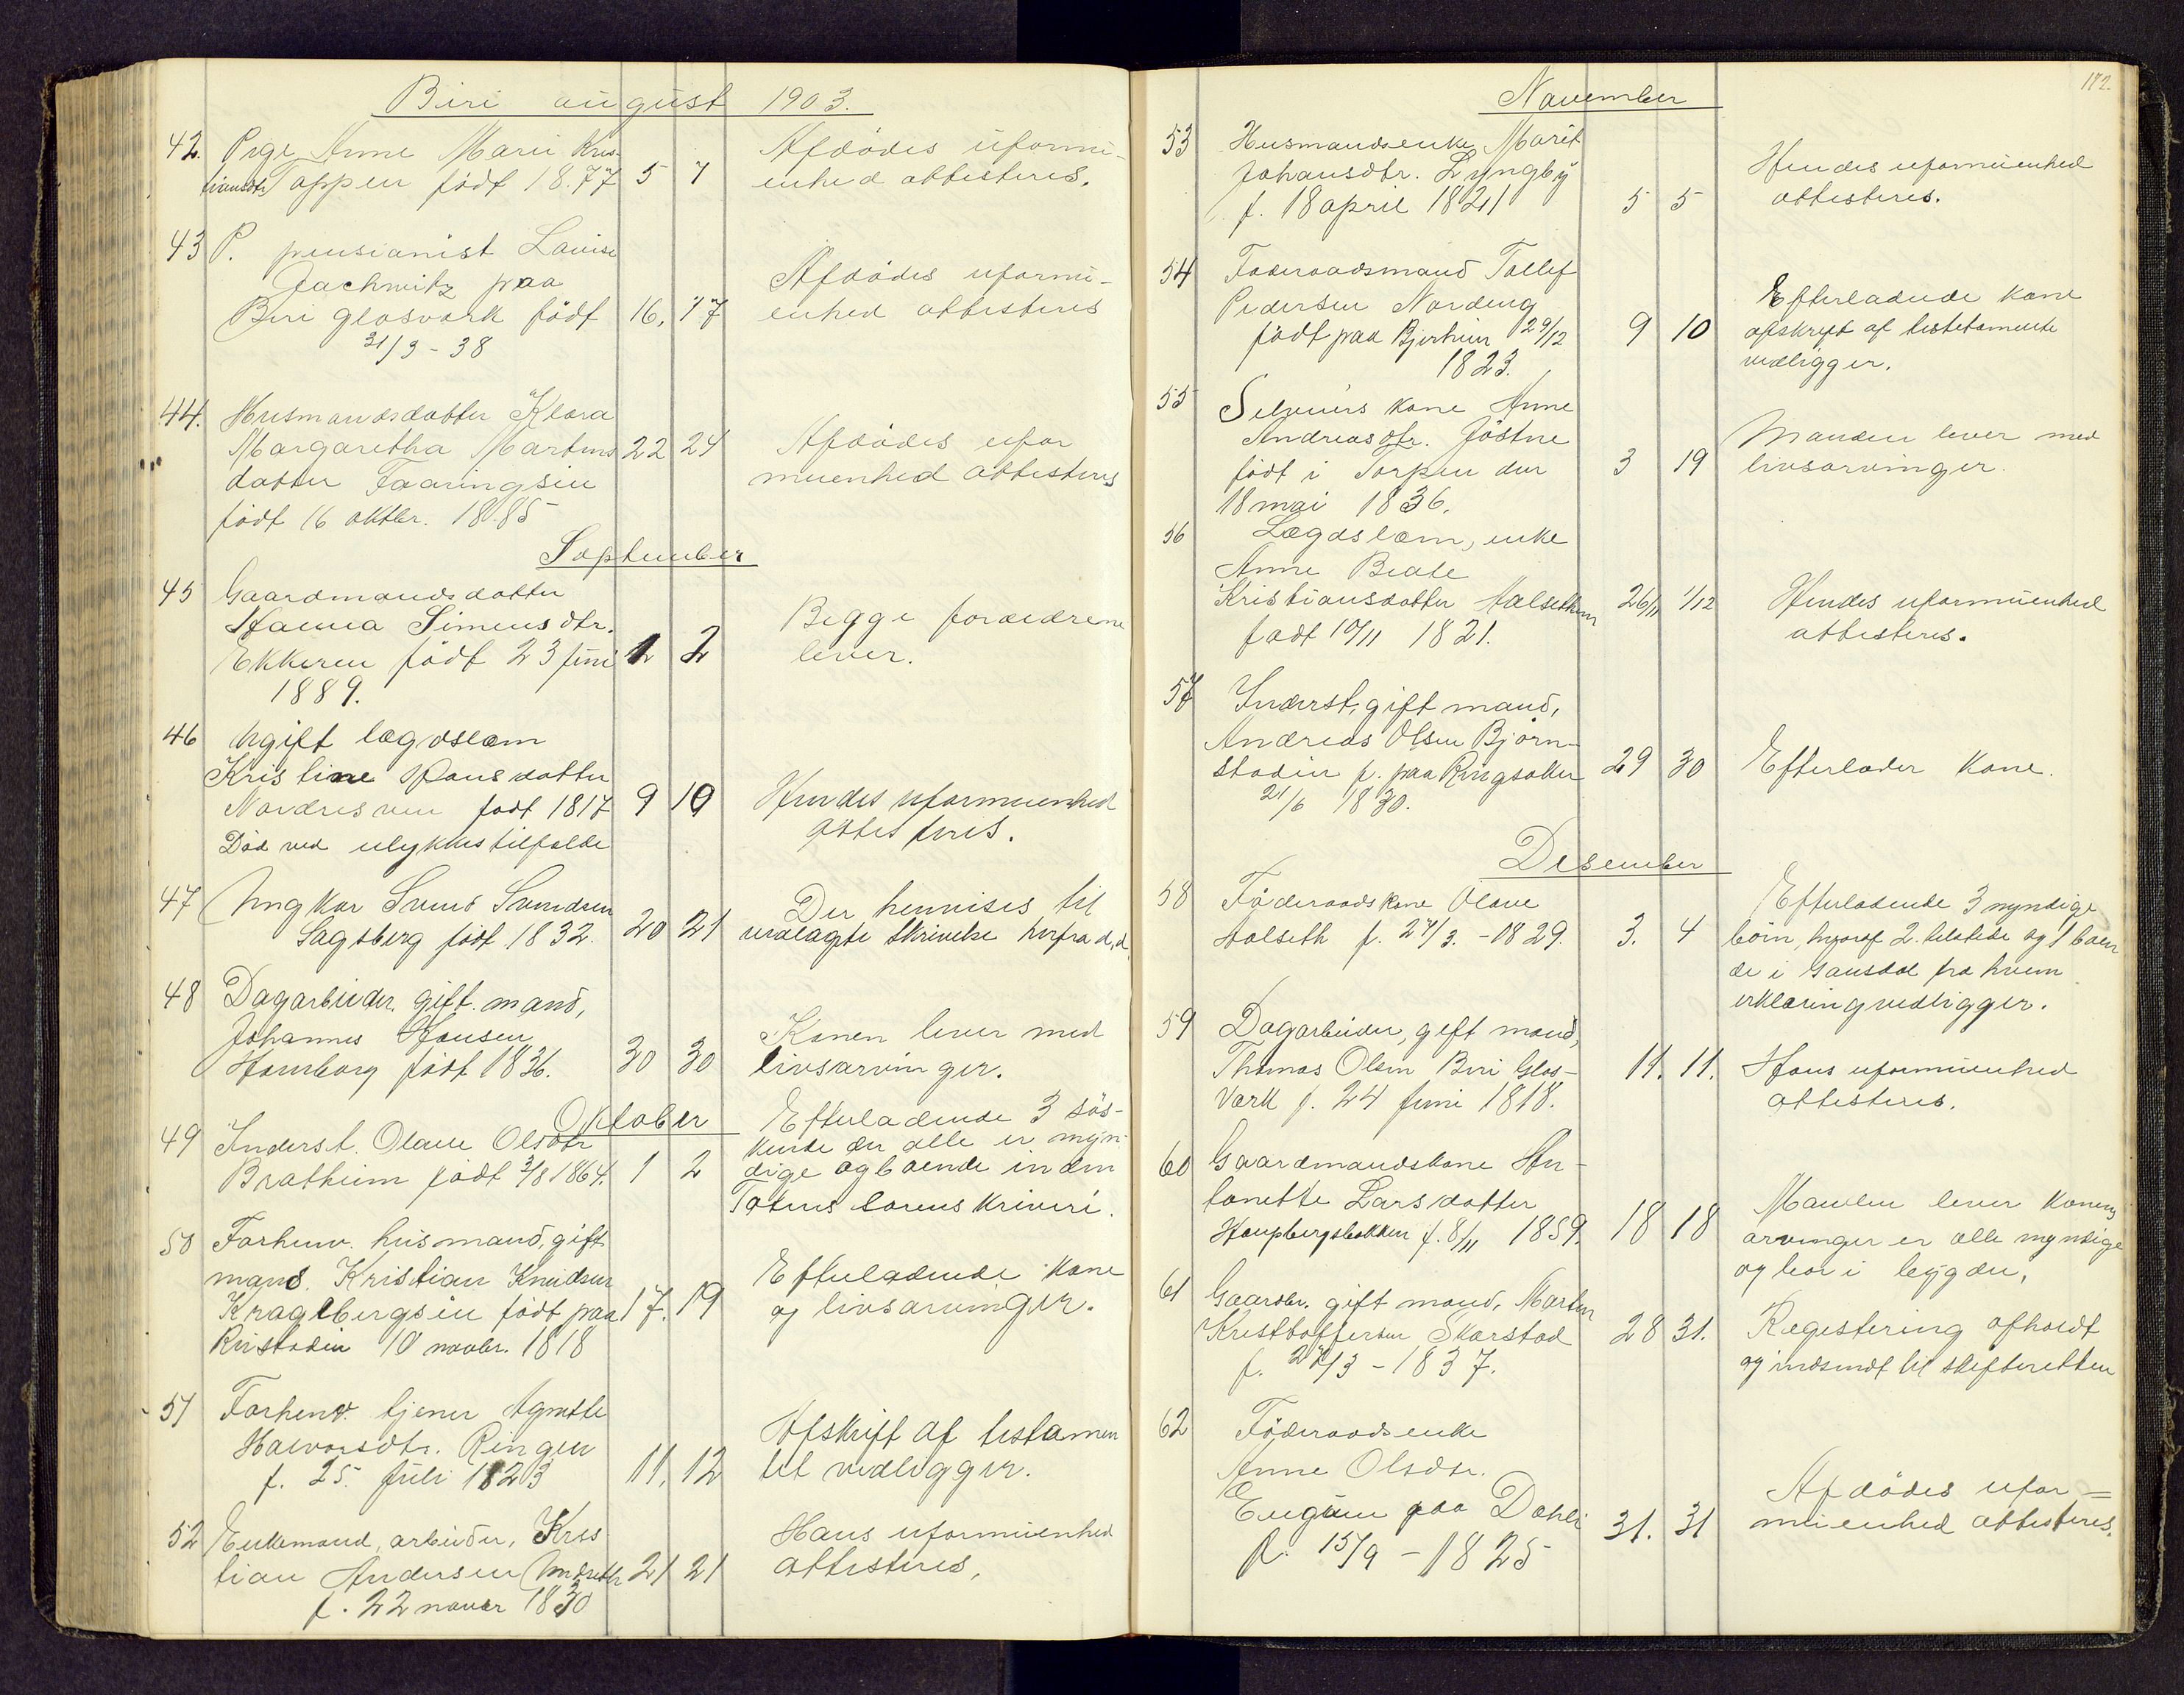 Biri august 1903.
42. Pige Anne Marie Kris-
tiansdtr Tappen født 1877 5 7
Afdødes uformu-
enhed attesteres.
43 P. pensionist Lovise
Jachwitz paa
Biri glasværk født 16. 17
31/3 - 38
Afdødes uformu-
enhed attesteres
44. Husmandsdatter Klara
Margaretha Martins 22 24
datter Faaringsein
født 16 oktbr. 1885
Afdødes ufor
muenhed attesteres
September
45 Gaardmandsdatter
Hanna Simensdtr.
Ekkeren født 23 juni 12 2
1889.
Begge forældrene
lever.
46 Ugift lægdslem
Kristine Hansdatter
Nordresveen født 1817 9 10
Død ved ulykkestilfælde
Hendes uformuenhed
attesteres.
47 Ungkar Svend Svendsen
Sagsberg født 1832. 20 21
Der henvises til
vedlagte skrivelse herfra d,d.
48 Dagarbeider, gift mand,
Johannes Hansen
Honsborg født 1836. 30 30
Konen lever med
livsarvinger.
Oktober
49 Inderst. Olave Olsdtr
Bratheim født 3/8 1864. 1 2
Efterladende 3 søs-
kende der alle er myn-
dige og boende inden
Totens sorenskriveri.
50 Forhenv. husmand, gift
mand Kristian Knudsen
Kragebergsein født paa 17. 19
Ristadein 10 novbr. 1818
Efterladende kone
og livsarvinger.
51 Forhenv. tjener Agnethe
Halvorsdtr. Ringen
f. 25. Juli 1823 11. 12
Afskrift af testamen
tet vedligger.
52 Enkemand, arbeider, Kris
tian Andersen Undseth 21 21
f. 22 novbr 1830
Hans uformuenhed
attesteres,
182.
November
53 Husmandsenke Marit
Johansdtr. Lyngby
f. 18 april 1821 5 5
Hendes uformuenhed
attesteres.
54 Føderaadsmand Tollef
Pedersen Nordeng
født paa Bjerheim 29/12 9 10
1823.
Efterladende kone
afskrift af testetamente
vedligger.
55 Selveiers kone Anne
Andreasdtr. Jøstne
født i Torpen den 3 19
18 mai 1836.
Manden lever med
livsarvinger.
56 Lægdslem, enke
Anne Beate
Kristiansdatter Aalsethm 26/11 1/12
født 10/11 1821.
Hendes uformuenhed
attesteres.
57 Inderst, gift mand,
Andreas Olsen Bjørn-
stadein f. paa Ringsaker 29 30
21/6 1830.
Efterlader kone.
Desember
58 Føderaadskone Olave
Aalseth f. 27/3. - 1829. 3. 4
Efterladende 3 myndige
børn, hvoraf 2. tilstede og 1 boen
de i Gausdal fra hvem
erklæring vedligger.
59 Dagarbeider, gift mand,
Thomas Olsen Biri Glas-
værk f. 24 Juni 1818. 11. 11.
Hans uformuenhed
attesteres.
60 Gaardmandskone An-
tonette Larsdatter
Haugbergsbakken f. 8/11 1859. 18 18
Manden lever konens
arvinger er alle myndige
og bor i bygden,
61 Gaardbr. gift mand, Martin
Kristoffersen Skarstad 28 31.
f. 27/3 - 1837.
Registering afholdt
og indsendt til skifteretten
62 Føderaadsenke
Anne Olsdtr.
Engum paa Dahli 31. 31
f. 15/9 - 1825
Afdødes ufor=
muenhed attesteres.